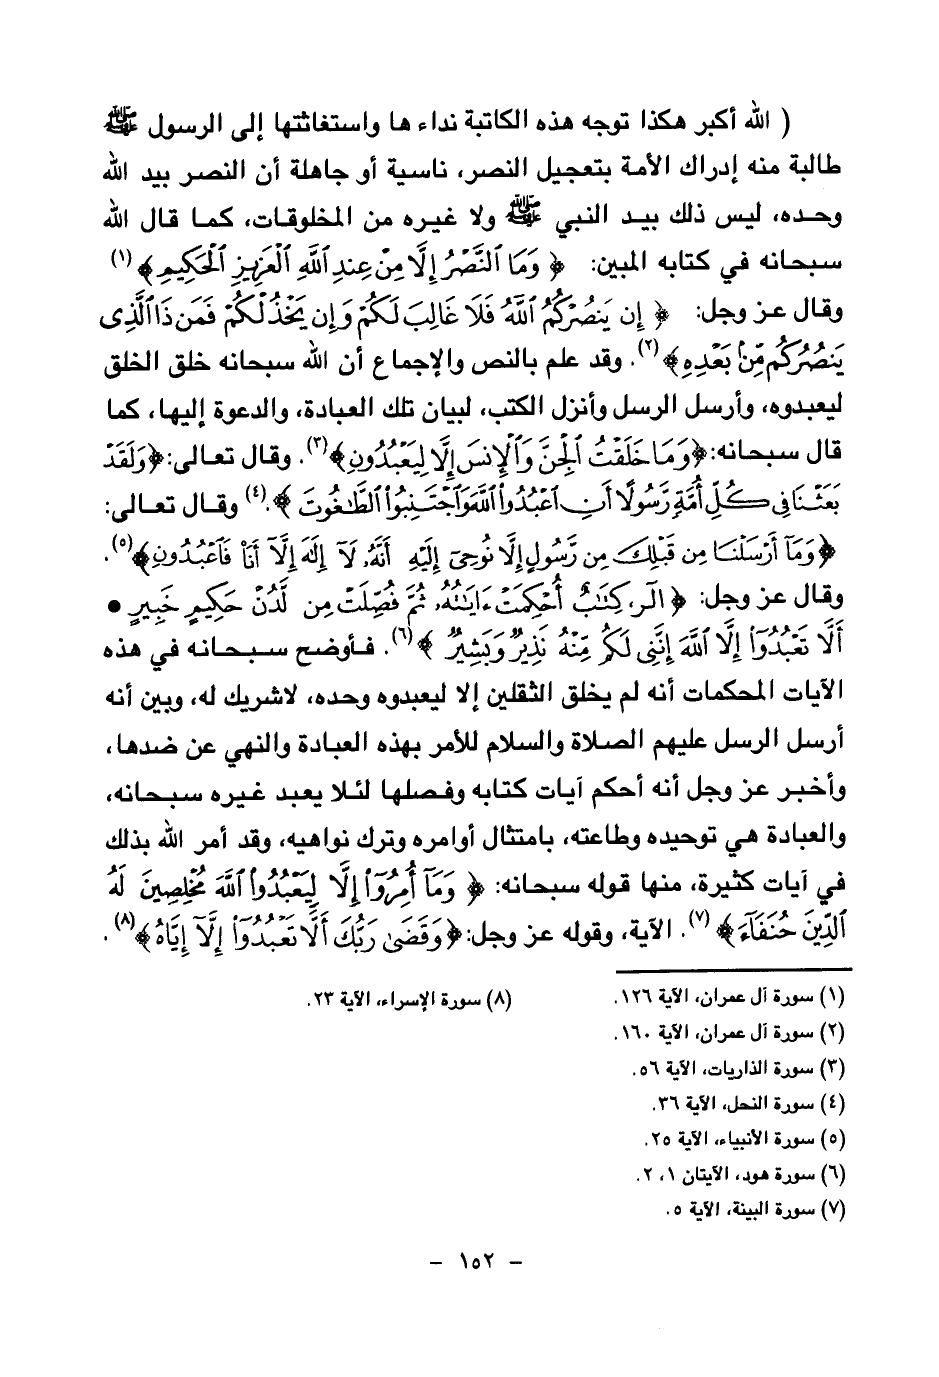 ( الله أكبر هكذا توجه هذه الكاتبة نداء ها واستغاثتها إلى الرسول ﷺ
طالبة منه إدراك الأمة بتعجيل النصر، ناسية أو جاهلة أن النصر بيد الله
وحده، ليس ذلك بيد النبي ﷺ ولا غيره من المخلوقات، كما قال الله
سبحانه في كتابه المبين: ﴿ وَمَا ٱلنَّصْرُ إِلَّا مِنْ عِندِ ٱللَّهِ ٱلْعَزِيزِ ٱلْحَكِيمِ ﴾(١)
وقال عز وجل: ﴿ إِن يَنصُرْكُمُ ٱللَّهُ فَلَا غَالِبَ لَكُمْ وَإِن يَخْذُلْكُمْ فَمَن ذَا ٱلَّذِى
يَنصُرُكُم مِّنۢ بَعْدِهِ ﴾(٢). وقد علم بالنص والإجماع أن الله سبحانه خلق الخلق
ليعبدوه، وأرسل الرسل وأنزل الكتب، لبيان تلك العبادة، والدعوة إليها، كما
قال سبحانه: ﴿وَمَا خَلَقْتُ ٱلْجِنَّ وَٱلْإِنسَ إِلَّا لِيَعْبُدُونِ﴾(٣). وقال تعالى: ﴿وَلَقَدْ
بَعَثْنَا فِى كُلِّ أُمَّةٍ رَّسُولًا أَنِ ٱعْبُدُوا۟ ٱللَّهَ وَٱجْتَنِبُوا۟ ٱلطَّٰغُوتَ ﴾.(٤) وقال تعالى:
﴿وَمَآ أَرْسَلْنَا مِن قَبْلِكَ مِن رَّسُولٍ إِلَّا نُوحِىٓ إِلَيْهِ أَنَّهُۥ لَآ إِلَٰهَ إِلَّآ أَنَا۠ فَٱعْبُدُونِ﴾(٥).
وقال عز وجل: ﴿ الٓر، كِتَٰبٌ أُحْكِمَتْ ءَايَٰتُهُۥ ثُمَّ فُصِّلَتْ مِن لَّدُنْ حَكِيمٍ خَبِيرٍ •
أَلَّا تَعْبُدُوٓا۟ إِلَّا ٱللَّهَ إِنَّنِى لَكُم مِّنْهُ نَذِيرٌ وَبَشِيرٌ ﴾(٦). فأوضح سبحانه في هذه
الآيات المحكمات أنه لم يخلق الثقلين إلا ليعبدوه وحده، لاشريك له، وبين أنه
أرسل الرسل عليهم الصلاة والسلام للأمر بهذه العبادة والنهي عن ضدها،
وأخبر عز وجل أنه أحكم آيات كتابه وفصلها لئلا يعبد غيره سبحانه،
والعبادة هي توحيده وطاعته، بامتثال أوامره وترك نواهيه، وقد أمر الله بذلك
في آيات كثيرة، منها قوله سبحانه: ﴿ وَمَآ أُمِرُوٓا۟ إِلَّا لِيَعْبُدُوا۟ ٱللَّهَ مُخْلِصِينَ لَهُ
ٱلدِّينَ حُنَفَآءَ ﴾(٧). الآية، وقوله عز وجل: ﴿وَقَضَىٰ رَبُّكَ أَلَّا تَعْبُدُوٓا۟ إِلَّآ إِيَّاهُ﴾(٨).
(١) سورة آل عمران، الآية ١٢٦.
(٢) سورة آل عمران، الآية ١٦٠.
(٣) سورة الذاريات، الآية ٥٦.
(٤) سورة النحل، الآية ٣٦.
(٥) سورة الأنبياء، الآية ٢٥.
(٦) سورة هود، الآيتان ١، ٢.
(٧) سورة البينة، الآية ٥.
(٨) سورة الإسراء، الآية ٢٣.
- ١٥٢ -